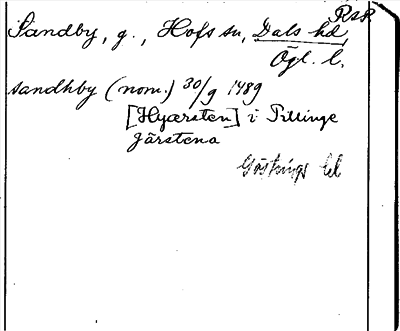 RzR
Sandby, g., Hofs sn, Dals hd,
Ögl. l.
sandhby (nom.) 30/9 1489
[Hyærsten] i Pillinge
Järstena
Göstrings hd